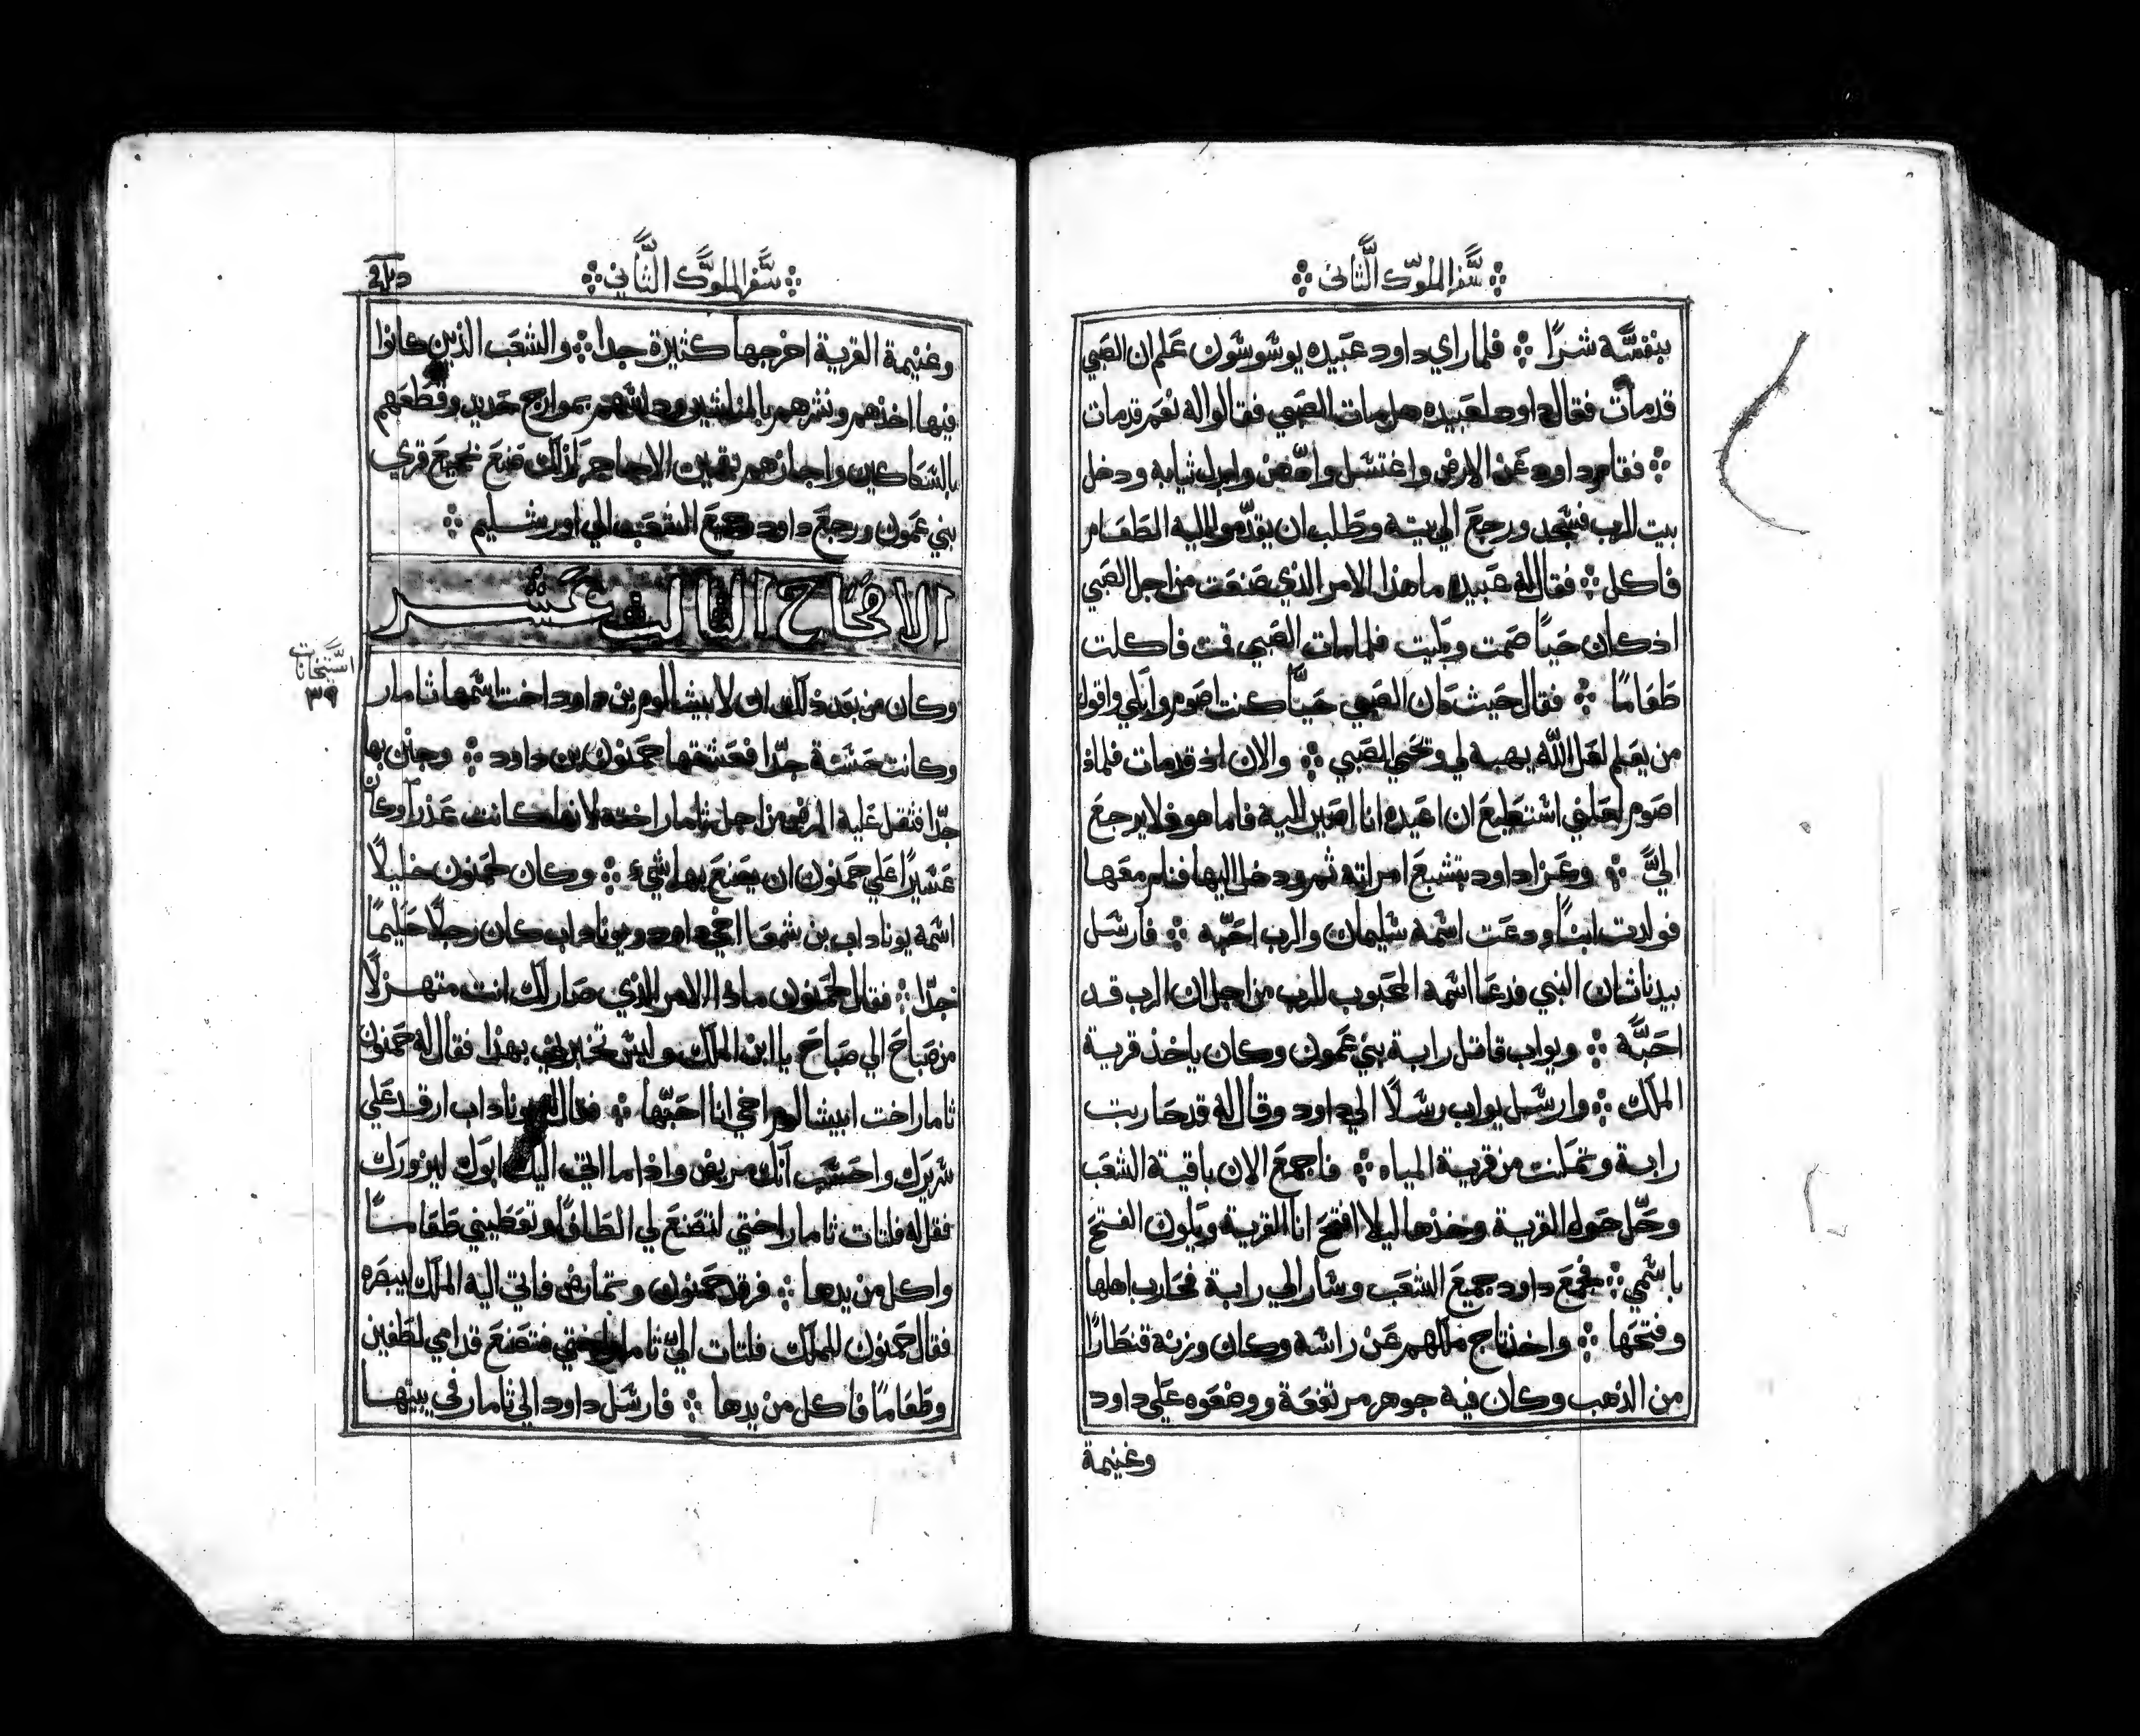 سفر الملوك الثاني
بنفسه شرًا فلما راي داود عبيده يوشوشون علم ان الصبي
قد مات فقال داود لعبيده هل مات الصبي فقالوا له نعم قد مات
فقام داود عن الارض واغتسل وادهن وابدل ثيابه ودخل
بيت الرب فسجد ورجع الي بيته وطلب ان يقدموا اليه الطعام
فاكل فقال له عبيده ما هذا الامر الذي صنعت من اجل الصبي
اذ كان حيًا صمت وبكيت فلما مات الصبي قمت فاكلت
طعامًا فقال حيث كان الصبي حيًا كنت اصوم وابكي واقول
من يعلم لعل الله يهبه لي ويحيي الصبي والان اذ قد مات فلماذا
اصوم لعلني استطيع ان اعيده انا اصير اليه فاما هو فلا يرجع
اليَّ وعزا داود بتشبع امراته ثم ودخل اليها فنام معها
فولدت ابنًا ودعت اسمه سليمان والرب احبه فارسل
بيد ناثان النبي فدعا اسمه المحبوب للرب من اجل ان الرب قد
احبَّه ويواب قاتل رابة بني عمون وكان ياخذ قرية
الملك وارسل يواب رسلًا الي داود وقال له قد حاربت
رابة وتمكنت من قرية المياه فاجمع الان باقية الشعب
وحل حول القرية وخذها ليلا افتح انا القرية ويكون الفتح
باسمي فجمع داود جميع الشعب وسار الي رابة فحارب اهلها
وفتحها واخذ تاج ملكهم عن راسه وكان وزنه قنطارًا
من الذهب وكان فيه جوهر مرتفعة ووضعوه علي داود
وغنيمة
سفر الملوك الثاني
وغنيمة القرية اخرجها كثيرة جدا والشعب الذين كانوا
فيها اخذهم ونشرهم بالمناشير وداسهم بموارج حديد وقطعهم
بالسكاكين واجازهم بقمين الاجاجر كذلك صنع بجميع قري
بني عمون ورجع داود وجميع الشعب الي اورشليم
الافتتاح الثالث عشر
استخانات
٣٩
وكان من بعد ذلك ان لابيشالوم بن داود اخت اسمها ثامار
وكانت حسنة جدًا فعشقها حمنون بن داود وحزن بها
جدًا فثقل عليه المرض من اجل ثامار اخته لانها كانت عذرا وكان
عسيرًا علي حمنون ان يصنع بها شيء وكان لحمنون خليلًا
اسمه يوناداب بن شمعا اخي داود ويوناداب كان رجلًا حكيمًا
جدًا فقال لحمنون ماذا الامر الذي صار لك انت متهزلًا
من صباح الي صباح يا ابن الملك وليس تخبرني بهذا فقال له حمنون
ثامار اخت ابيشالوم اخي انا احبها فقال له يوناداب ارقد علي
سريرك واحسب انك مريض واذا ما اتي اليك ابوك ليزورك
فقل له فلتات ثامار اختي لتصنع لي الطافًا وتعطيني طعامًا
واكل من يدها فرقد حمنون وتمارض فاتي اليه الملك ليبصره
فقال حمنون للملك فلتات اليّ ثامار اختي فتصنع قدامي لطفين
وطعامًا فاكل من يدها فارسل داود الي ثامار في بيتها